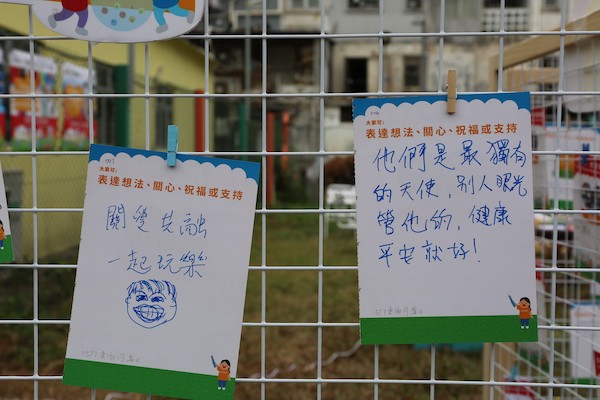 大家可:
表達想法、關心、祝福或支持
關愛共融
一起玩樂
大家可:
表達想法、關心、祝福或支持
他們是最獨有
的天使,別人眼光
管他的,健康
平安就好!